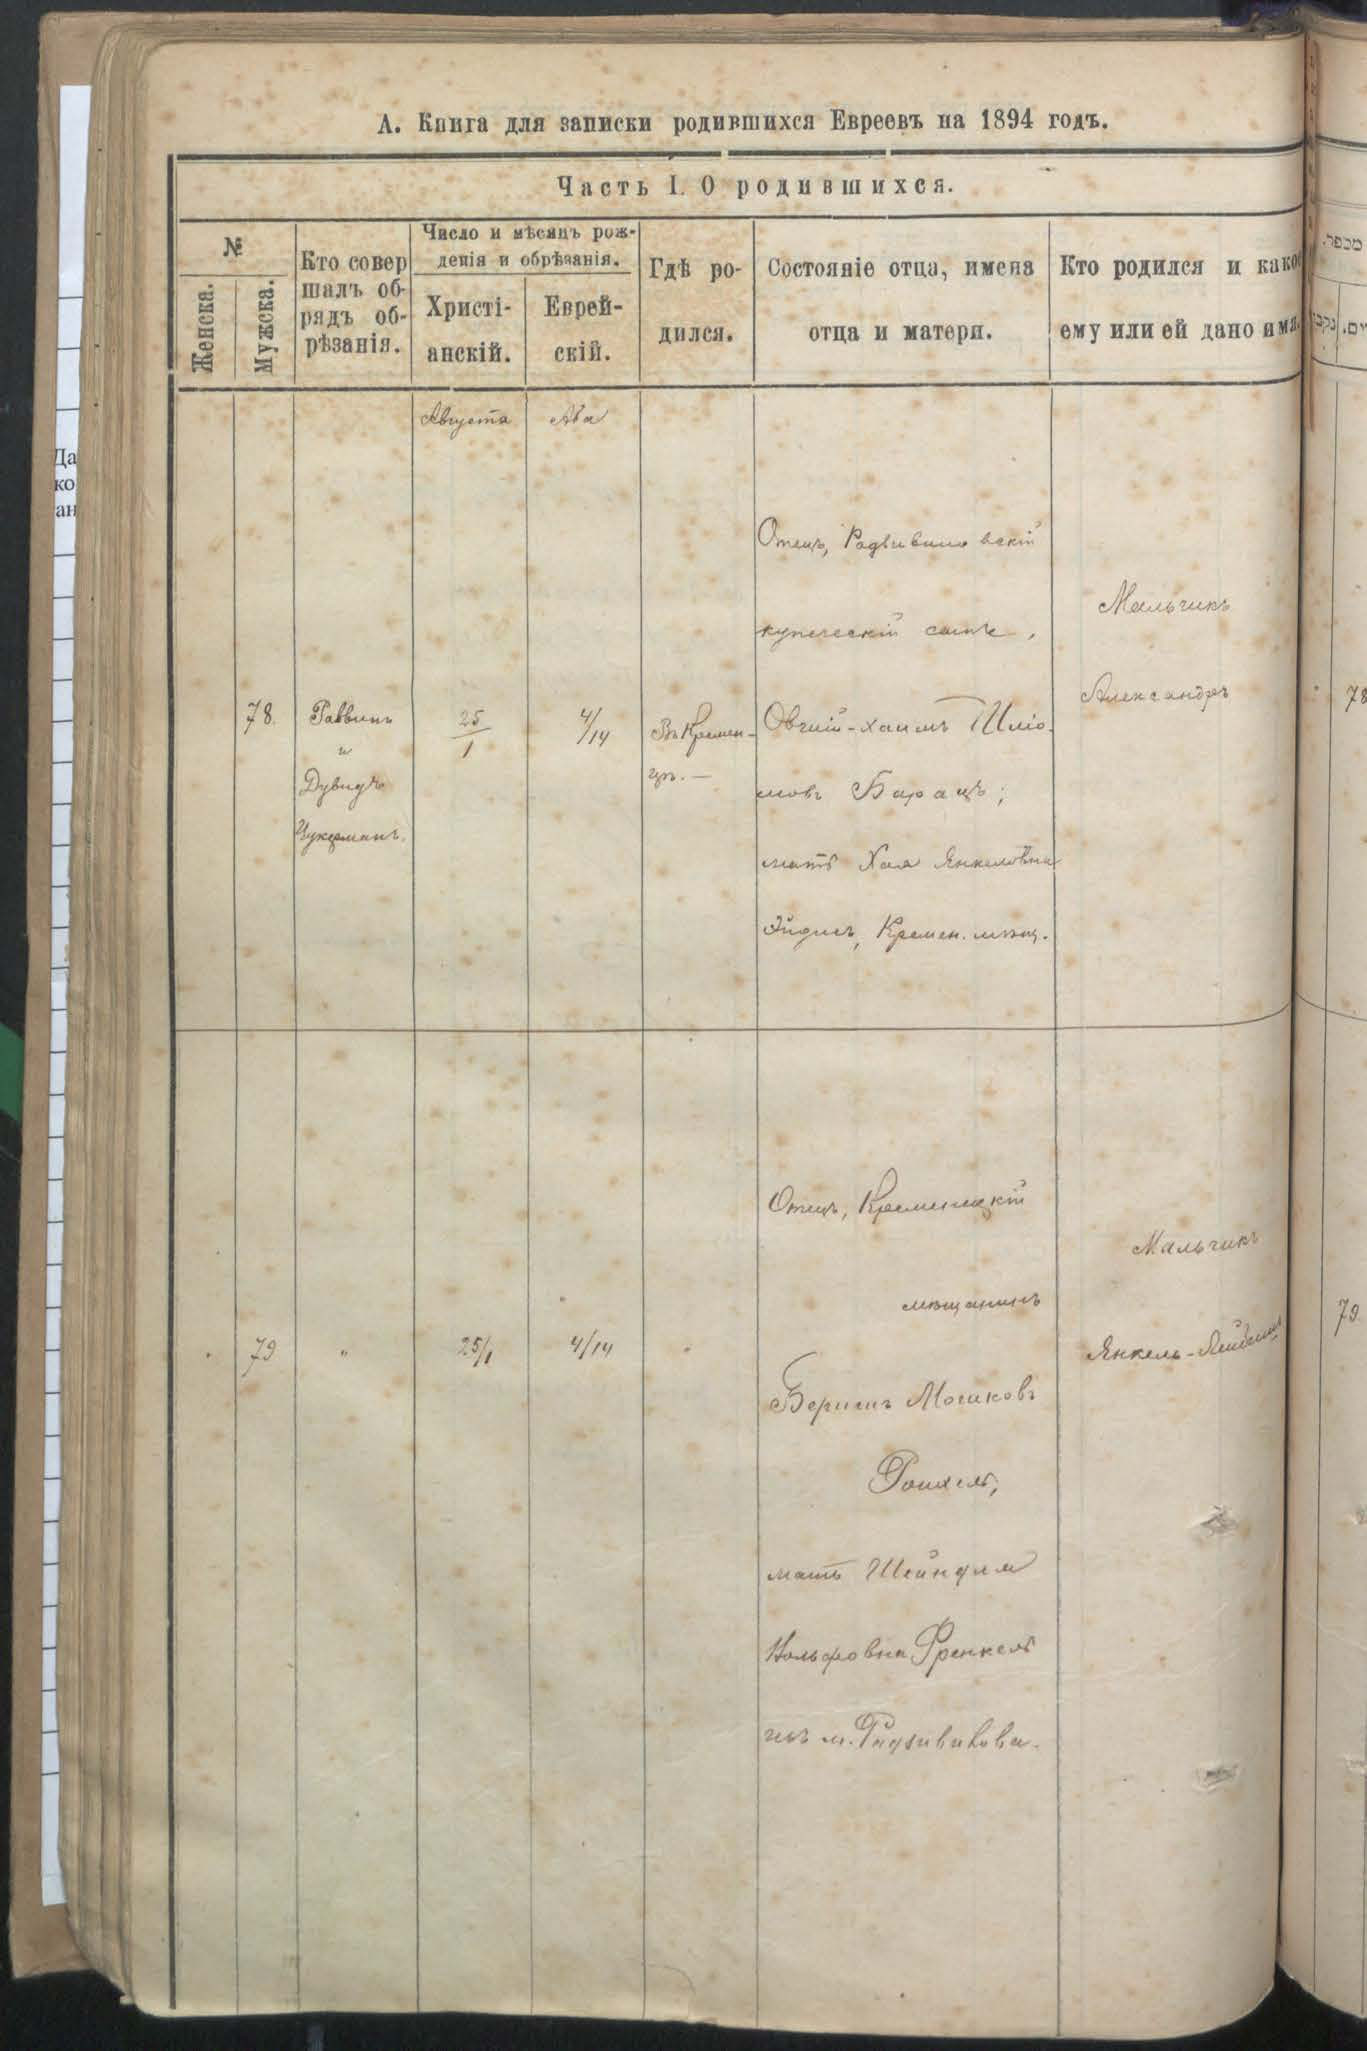 А. Книга для записки родившихся Евреевъ на 1894 годъ.
Часть I. О родившихся.
№
Женска.
Мужска.
Кто совер
шалъ об-
рядъ об-
рѣзанія.
Число и мѣсяцъ рож-
денія и обрѣзанія.
Христі-
анскій.
Еврей-
скій.
Гдѣ ро-
дился.
Состояніе отца, имена
отца и матери.
Кто родился и како
ему или ей дано имя.
Августа
Ава
78.
Раввинъ
и
Дувидъ
Цукерманъ.
25/1
4/14
Въ Кремен-
цѣ. —
Отецъ, Радзивиловскій
купеческій сынъ,
Овший-Хаимъ Шліо-
мовъ Барацъ;
мать Хая Янкеловна
Эйдисъ, Кремен. мѣщ.
Мальчикъ
Александръ
79
"
25/1
4/14
Отецъ, Кременецкій
мѣщанинъ
Беришъ Мошковъ
мать Шейндля
Вольфовна Френкель
изъ м. Радзивилова.
Мальчикъ
Янкель-Лейбишъ
Да
ко
ан
מספר.
נקב
ים.
78
79